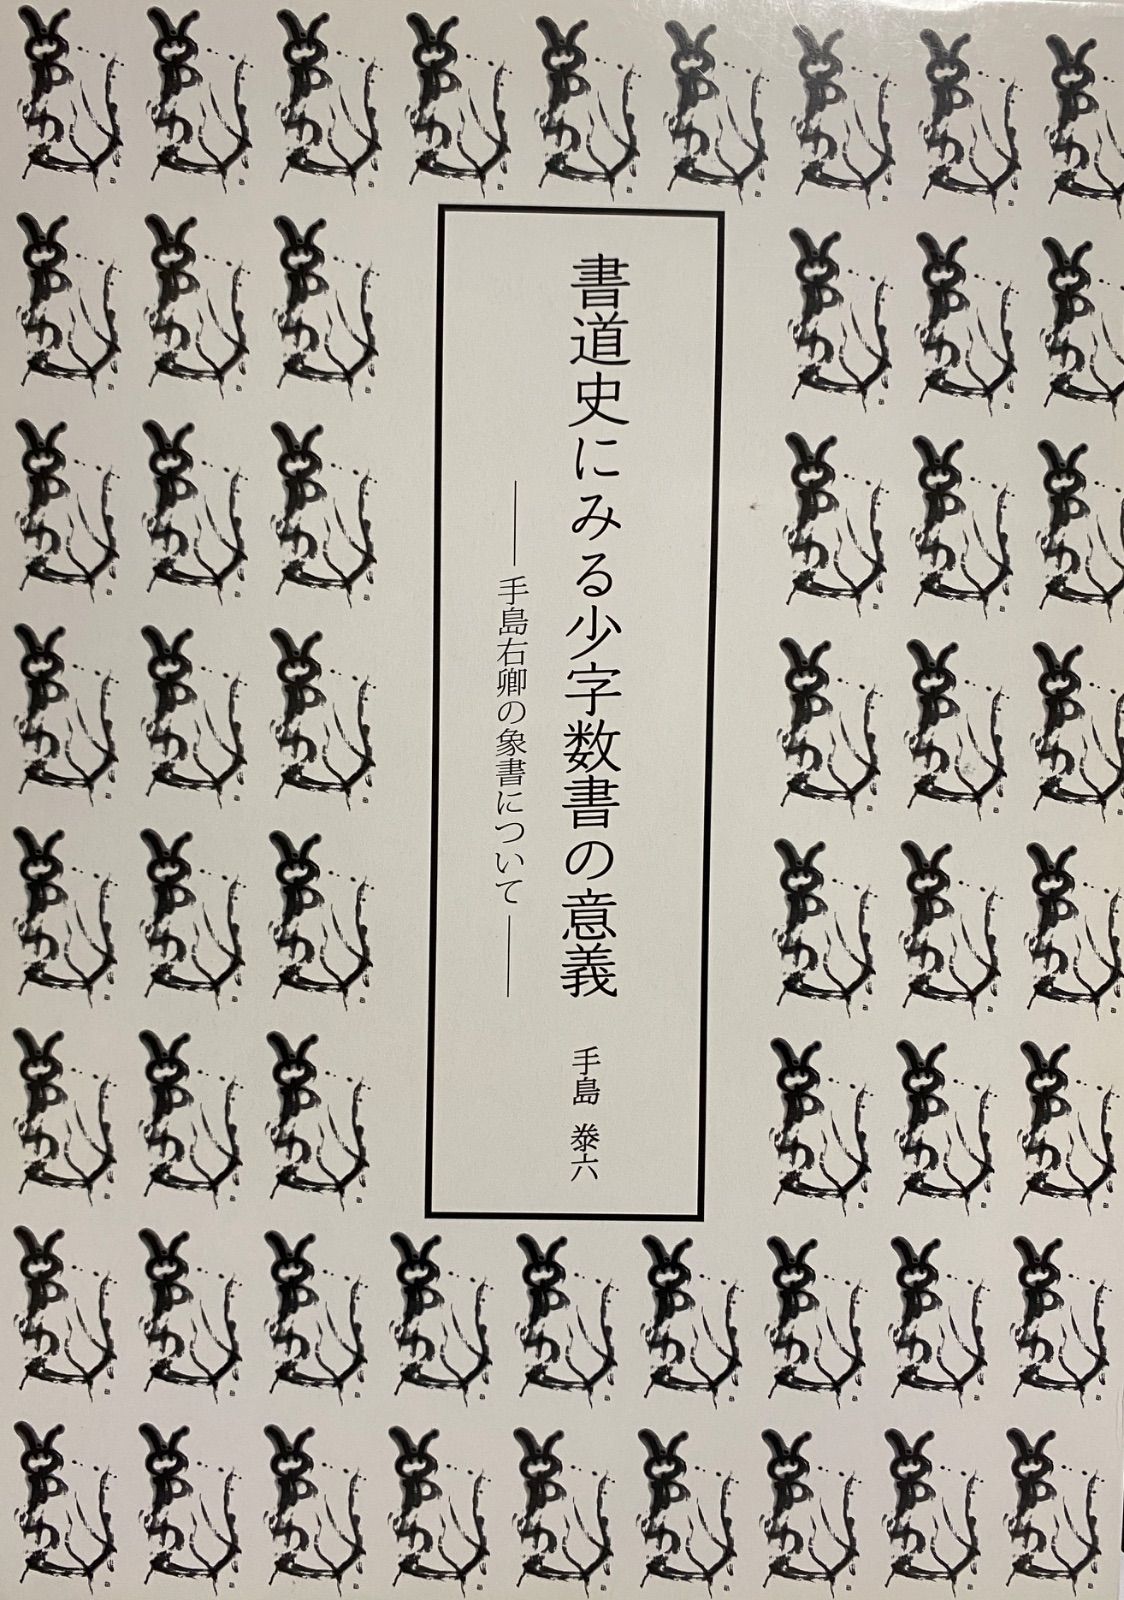 書道史にみる少字数書の意義 手島 泰六
――手島右卿の象書について――